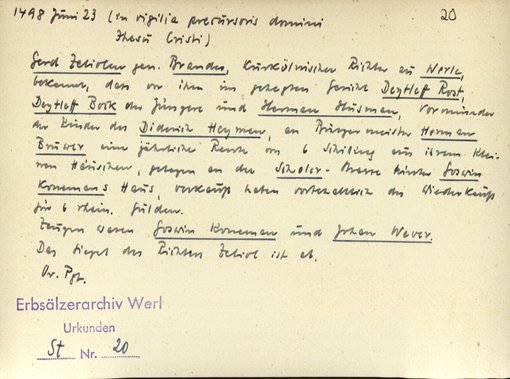 1498 Juni 23 (in vigilia precursoris domini
20
Jhesu Cristi)
Gerd Zelion gen. Brandes, Kurkölnischer Richter zu Werle,
bekennt, dass vor ihm im gehegten Gericht Deytleff Rost,
Deytleff Boik der Jüngere und Herman Husman, Vormünder
der Kinder des Diderich Heymen, an Bürgermeister Herman
Brüwer eine jährliche Rente von 6 Schilling aus ihrem Klei-
nen Häuschen, gelegen an der Scholer-Strasse hinter Goswin
Konemans Haus, verkauft haben vorbehaltlich des Wiederkaufs
für 6 rhein. Gulden.
Zeugen waren Goswin Koneman und Johan Wever.
Das Siegel des Richters Zelion ist ab.
Or. Pgt.
Erbsälzerarchiv Werl
Urkunden
St Nr. 20